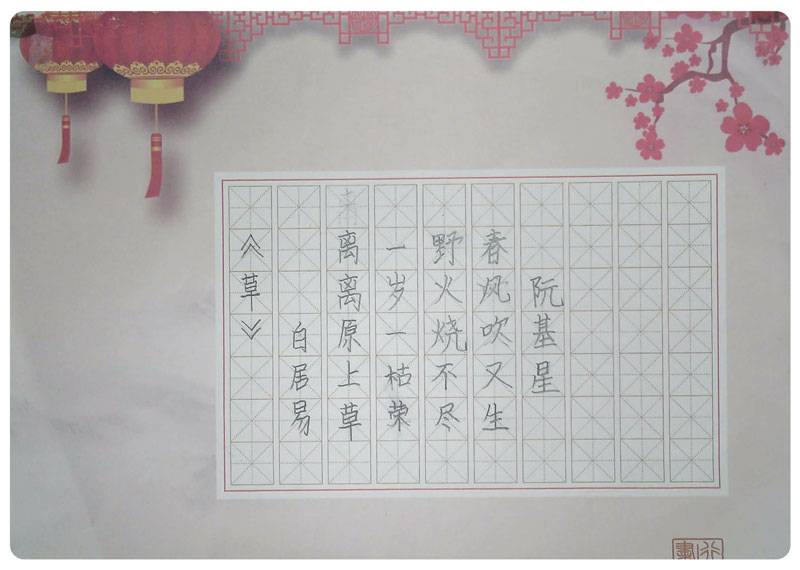 《草》
白居易
离离原上草
一岁一枯荣
野火烧不尽
春风吹又生
阮基星